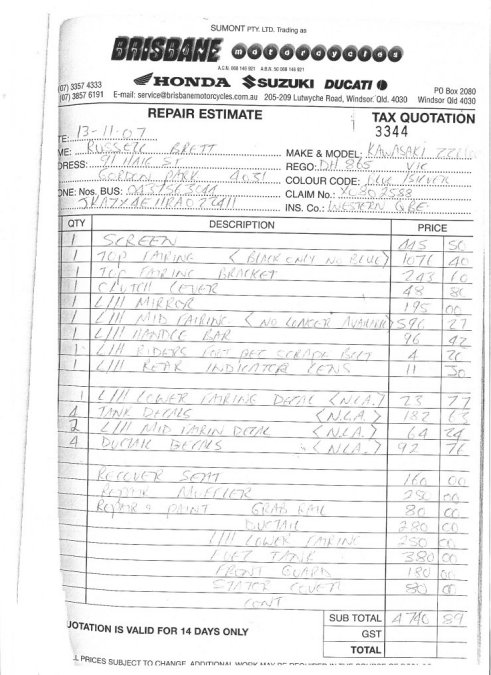 SUMONT PTY. LTD. Trading as
BRISBANE motorcycles
A.C.N. 068 146 921 A.B.N. 50 068 146 921
HONDA SUZUKI DUCATI
(07) 3357 4333 PO Box 2080
(07) 3857 6191 E-mail: service@brisbanemotorcycles.com.au 205-209 Lutwyche Road, Windsor. Qld. 4030 Windsor Qld 4030
REPAIR ESTIMATE TAX QUOTATION
3344
TE: 13-11-07
ME: RUSSELL BRETT MAKE & MODEL: KAWASAKI
DRESS: 91 HAIG ST REGO: DH 865 VIC
GORDON PARK 4031 COLOUR CODE: BLUE / SILVER
ONE: Nos. BUS: CLAIM No.:
INS. Co.: WESTERN QBE
QTY DESCRIPTION PRICE
1 SCREEN 445 50
1 TOP FAIRING < BLACK ONLY NO BLUE > 1071 40
1 TOP FAIRING BRACKET 243 60
1 CLUTCH LEVER 48 80
1 L/H MIRROR 195 00
1 L/H MID FAIRING < NO LONGER AVAILABLE > 596 27
1 L/H HANDLE BAR 96 42
1 L/H RIDERS FOOT PEG SCRAPE BOLT 4 70
1 L/H REAR INDICATOR LENS 11 30
1 L/H LOWER FAIRING DECAL < N.L.A. > 23 77
4 TANK DECALS < N.L.A. > 182 63
2 L/H MID FAIRIN DECAL < N.L.A. > 64 24
4 DUCTAIL DECALS < N.L.A. > 92 76
RECOVER SEAT 160 00
REPAIR MUFFLER 250 00
REPAIR & PAINT GRAB RAIL 80 00
DUCTAIL 280 00
L/H LOWER FAIRING 250 00
FUEL TANK 380 00
FRONT GUARD 180 00
STATOR COVER 80 00
CONT
SUB TOTAL 4740 89
UOTATION IS VALID FOR 14 DAYS ONLY GST
TOTAL
LL PRICES SUBJECT TO CHANGE. ADDITIONAL WORK MAY BE REQUIRED IN THE COURSE OF